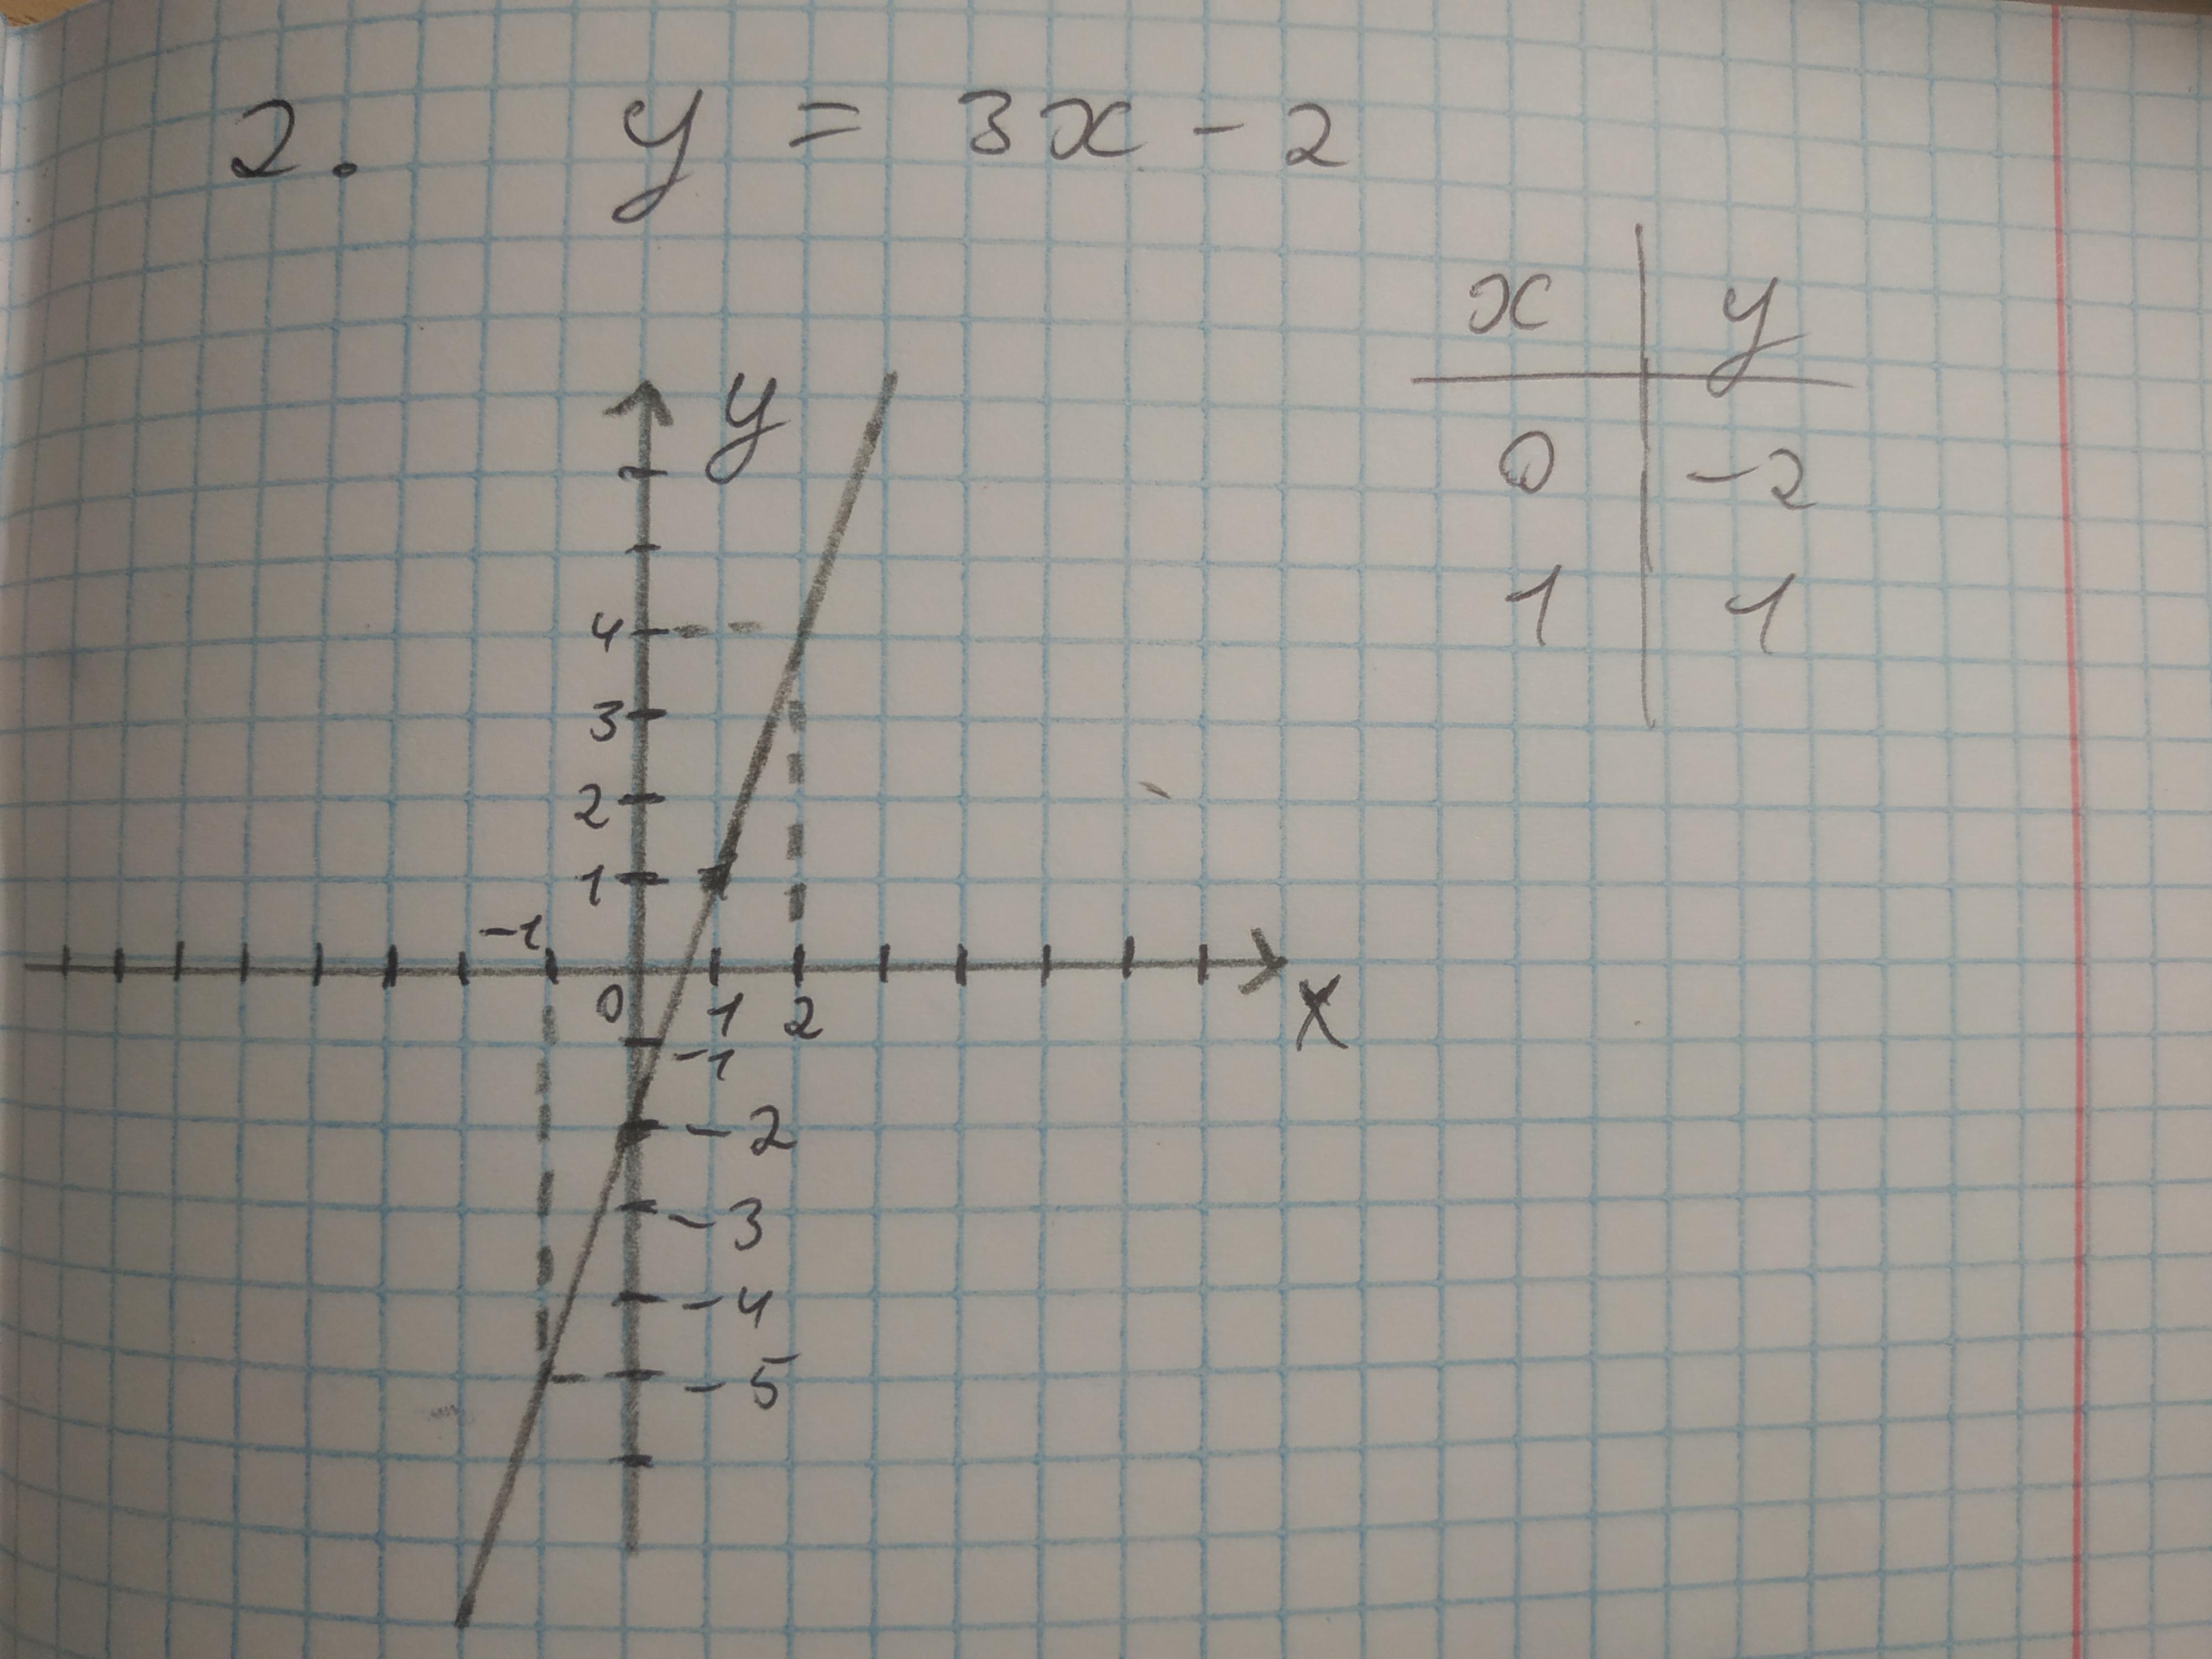 2. y = 3x - 2
x y
0 -2
1 1
y
4
3
2
1
-1
0 1 2 x
-1
-2
-3
-4
-5